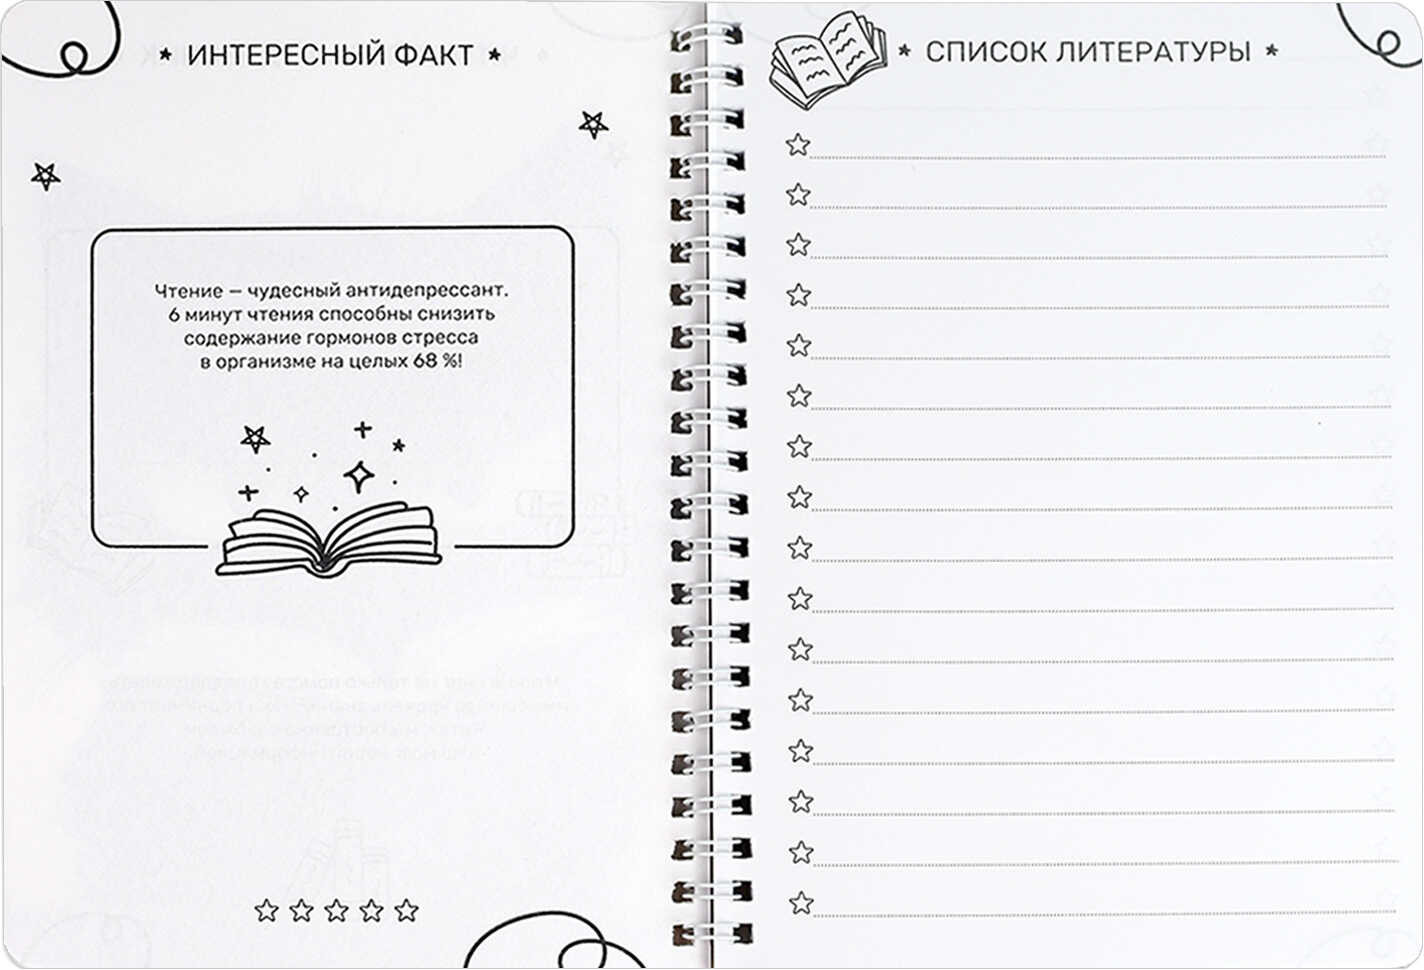 ИНТЕРЕСНЫЙ ФАКТ
Чтение — чудесный антидепрессант.
6 минут чтения способны снизить
содержание гормонов стресса
в организме на целых 68 %!
СПИСОК ЛИТЕРАТУРЫ